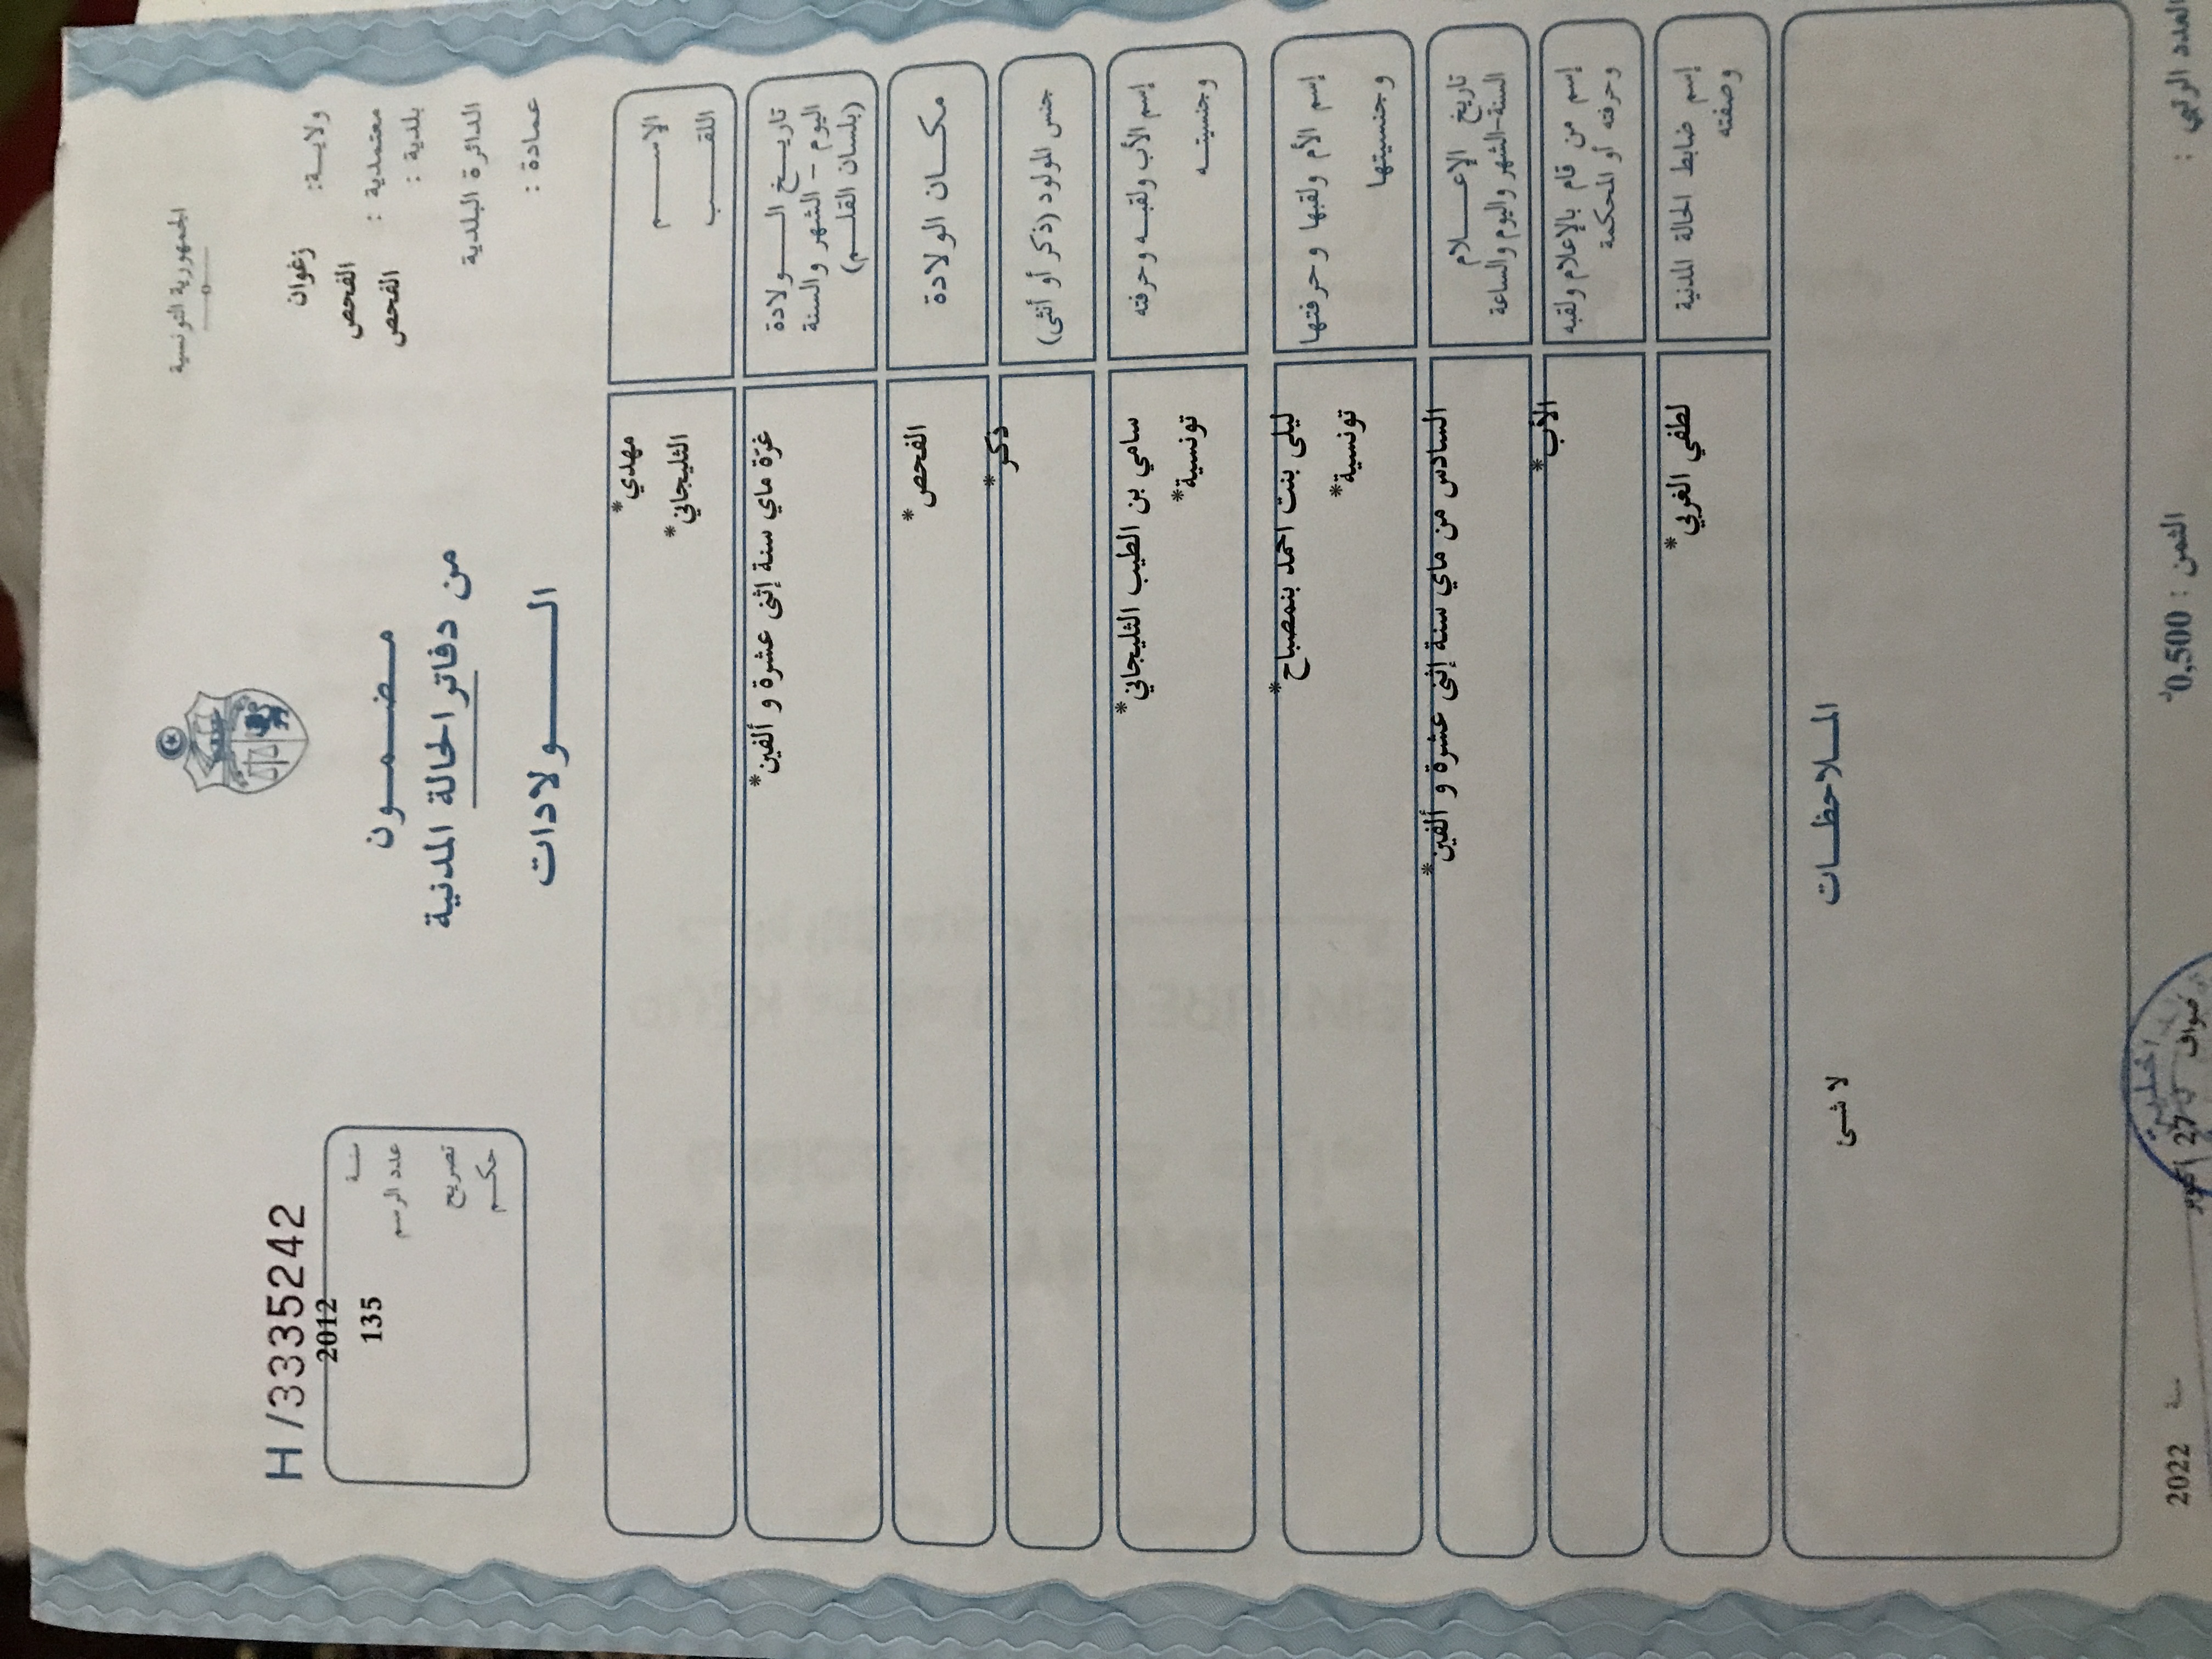 الجمهورية التونسية
ولاية: زغوان
معتمدية : الفحص
بلدية : الفحص
الدائرة البلدية
عمادة :
مضمون
من دفاتر الحالة المدنية
الولادات
H/3335242
سنة 2012
عدد الرسم 135
تصريح
حكم
الإسم مهدي*
اللقب الثليجاني*
تاريخ الولادة
اليوم - الشهر والسنة
(بلسان القلم)
غرّة ماي سنة إثنى عشرة و ألفين*
مكان الولادة الفحص*
جنس المولود (ذكر أو أنثى) ذكر*
إسم الأب ولقبه وحرفته سامي بن الطيب الثليجاني*
وجنسيته تونسية*
إسم الأم ولقبها وحرفتها ليلى بنت احمد بنمصباح*
وجنسيتها تونسية*
تاريخ الإعلام
السنة-الشهر واليوم والساعة
السادس من ماي سنة إثنى عشرة و ألفين*
إسم من قام بالإعلام ولقبه الأب*
وحرفته أو المحكمة
إسم ضابط الحالة المدنية لطفي الغربي*
وصفته
الملاحظات
لا شىء
العدد الرتبي :
الثمن : 0,500د
27 اكتوبر
سنة 2022